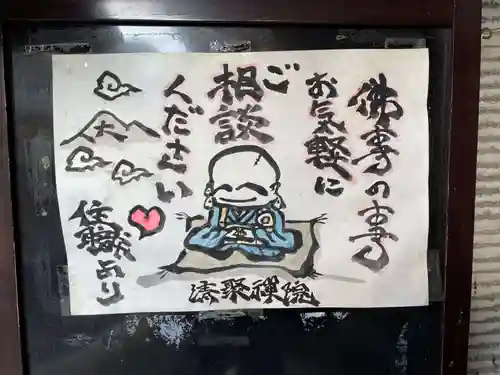 佛事のの事
お気軽に
ご
相談
ください
住職より
済聚禅院